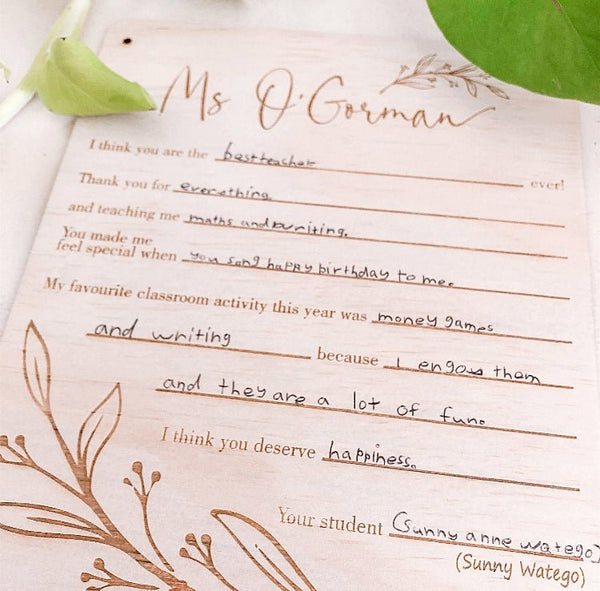 Ms O'Gorman
I think you are the best teacher ever!
Thank you for everything.
and teaching me maths and writing.
You made me
feel special when you song happy birthday to me.
My favourite classroom activity this year was money games
and writing because I engoys them
and they are a lot of fun.
I think you deserve happiness.
Your student (Sunny anne watego)
(Sunny Watego)